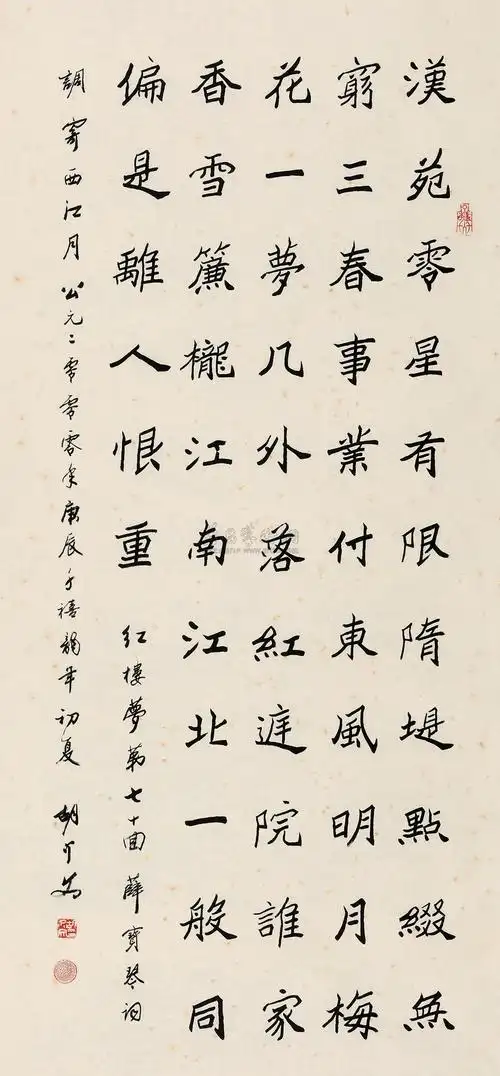 漢苑零星有限隋堤點綴無
窮三春事業付東風明月梅
花一夢几外落紅庭院誰家
香雪簾櫳江南江北一般同
偏是離人恨重
红楼夢第七十回 薛寶琴词
調寄西江月 公元二零零零年庚辰千禧龍年初夏